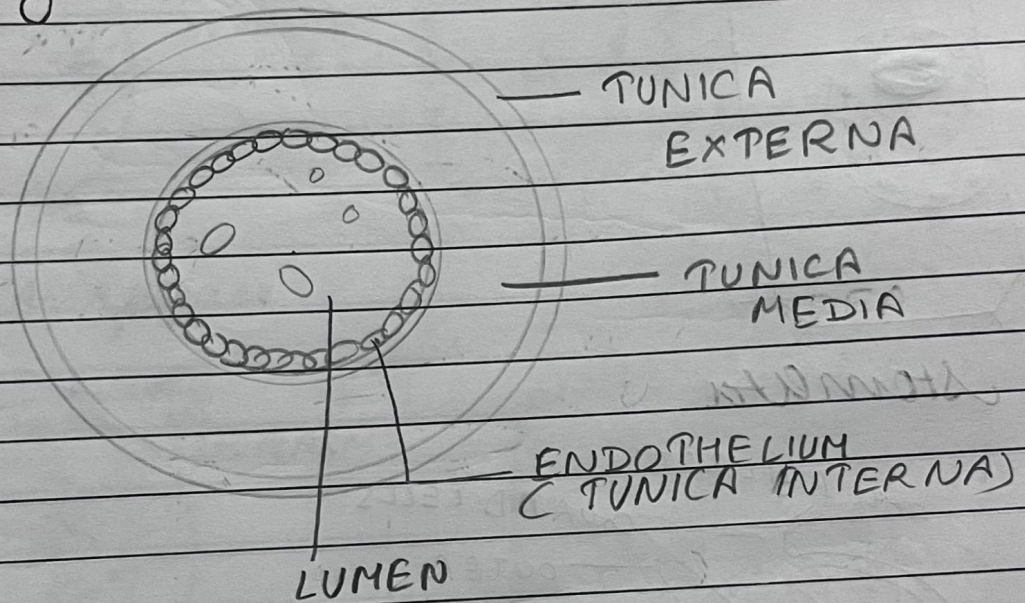 TUNICA
EXTERNA
TUNICA
MEDIA
ENDOTHELIUM
( TUNICA INTERNA)
LUMEN